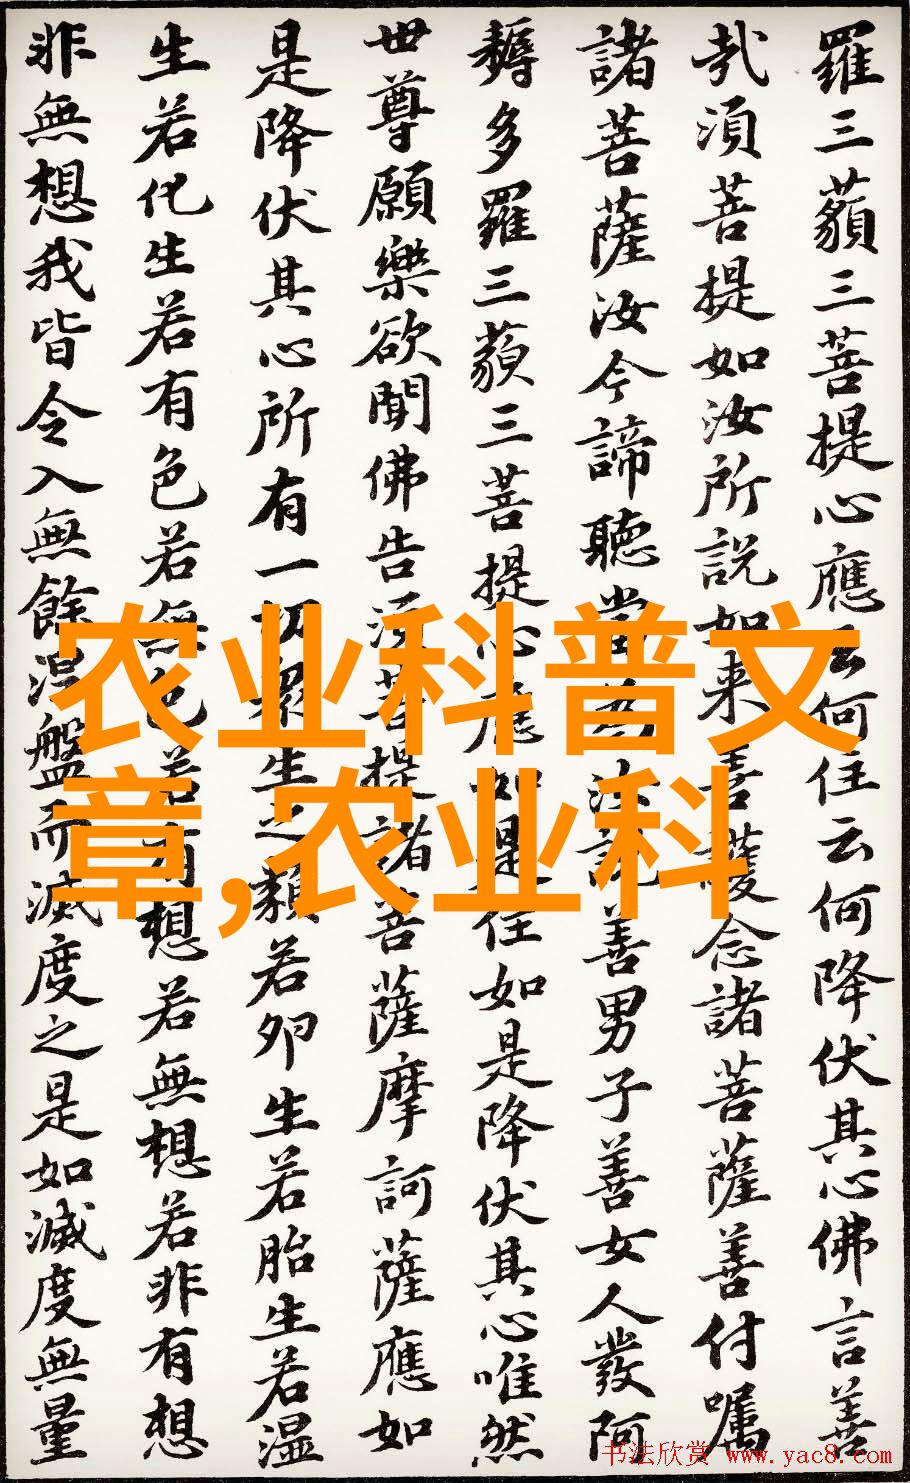 羅三藐三菩提心應云何住云何降伏其心佛言善
哉須菩提如汝所說如来善護念諸菩薩善付嘱
諸菩薩汝今諦聽當為汝說善男子善女人發阿
耨多羅三藐三菩提心應如是住如是降伏其心唯然
世尊願樂欲聞佛告須菩提諸菩薩摩訶薩應如
是降伏其心所有一切眾生之類若卵生若胎生若湿
生若化生若有色若無色若有想若無想若非有想
非無想我皆令入無餘涅盤而滅度之是如滅度無量
农业科普文
章,农业科
书法欣赏 www.yac8.com